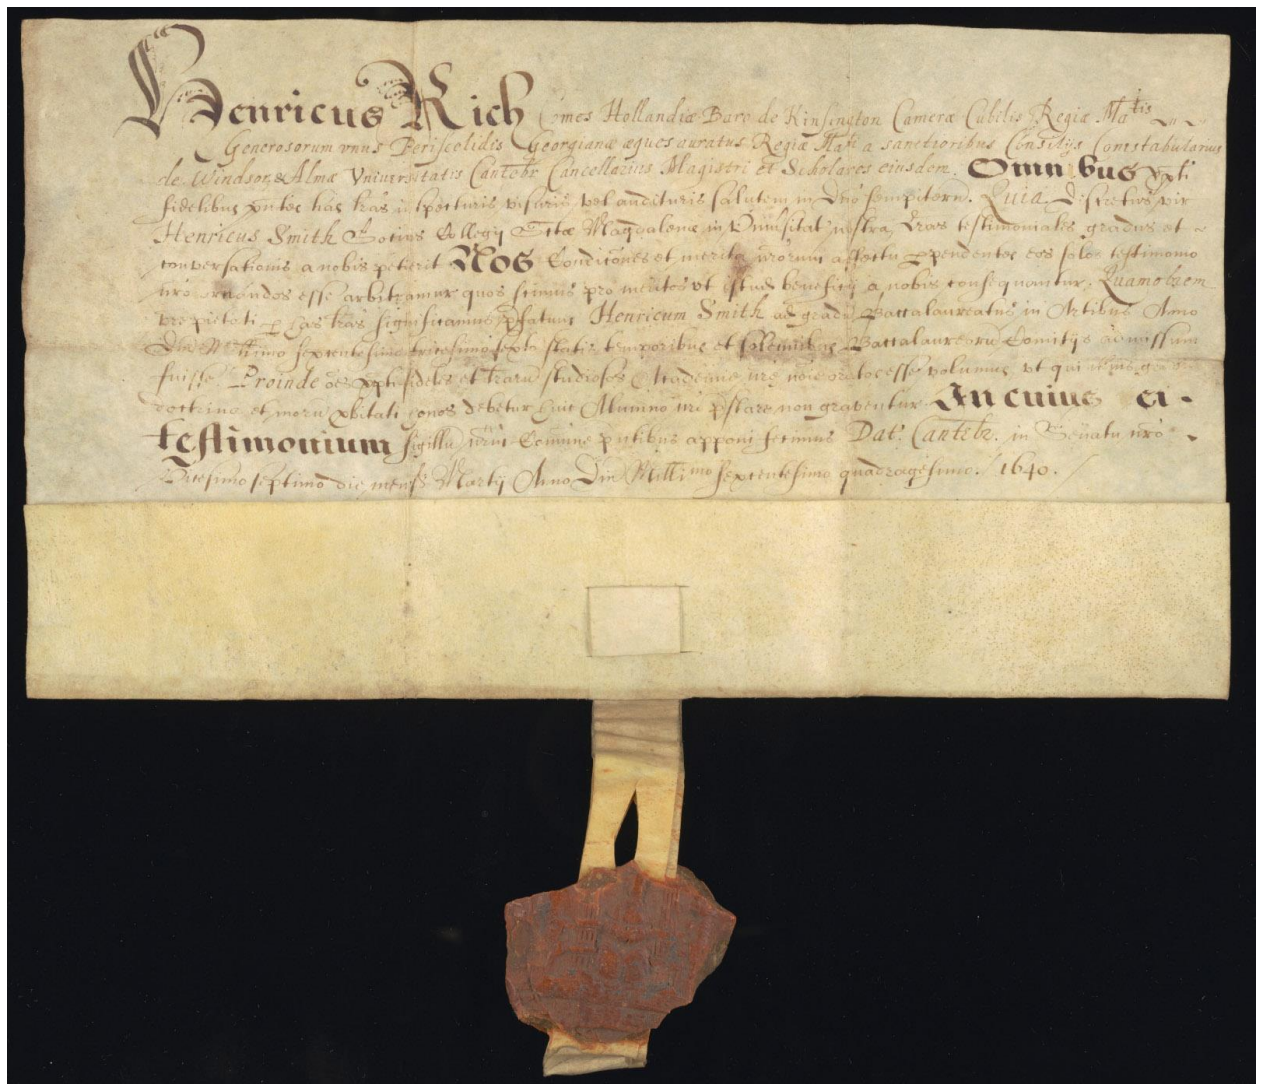 Henricus Rich Comes Hollandiæ Baro de Kinsington Cameræ Cubilis Regiæ Matis
Generosorum unus Periscelidis Georgianæ æques auratus Regiæ Mati a sanctioribus Consilijs Constabularius
de Windsor, & Almæ Universitatis Cantebr Cancellarius Magistri et Scholares eiusdem. Omnibus xpi
fidelibus pntes has lras inspecturis visuris vel audituris salutem in Dno sempiterna. Quia Discretus vir
Henricus Smith Socius Collegij Magdalenæ in Universitat nostra Lras testimoniales gradus et
conversationis a nobis petierit Nos Condiciones et merita affectu ppendentes eos solos testimonio
nro ornandos esse arbitramur quos scimus pro meritos ut istud beneficij a nobis consequantur. Quamobrem
pietati p has lras significamus pfatum Henricum Smith ad gradu Baccalaureatus in Artibus Anno
Dni septentesimo tricesimo sexto statis temporibus et solennibus Baccalaureoru Comitijs admissum
fuisse Proinde oes fideles et studiosos Academiæ nre volumus ut qui
doctrina et moru pbitati honos debetur huic Alumno nri pstare non graventur In cuius ei
testimonium sigillu nrm Comune pntibus apponi fecimus Dat. Cantebr. in Senatu nro
septimo die mensis Martij Anno Dni Millimo sexcentesimo quadragesimo. / 1640.